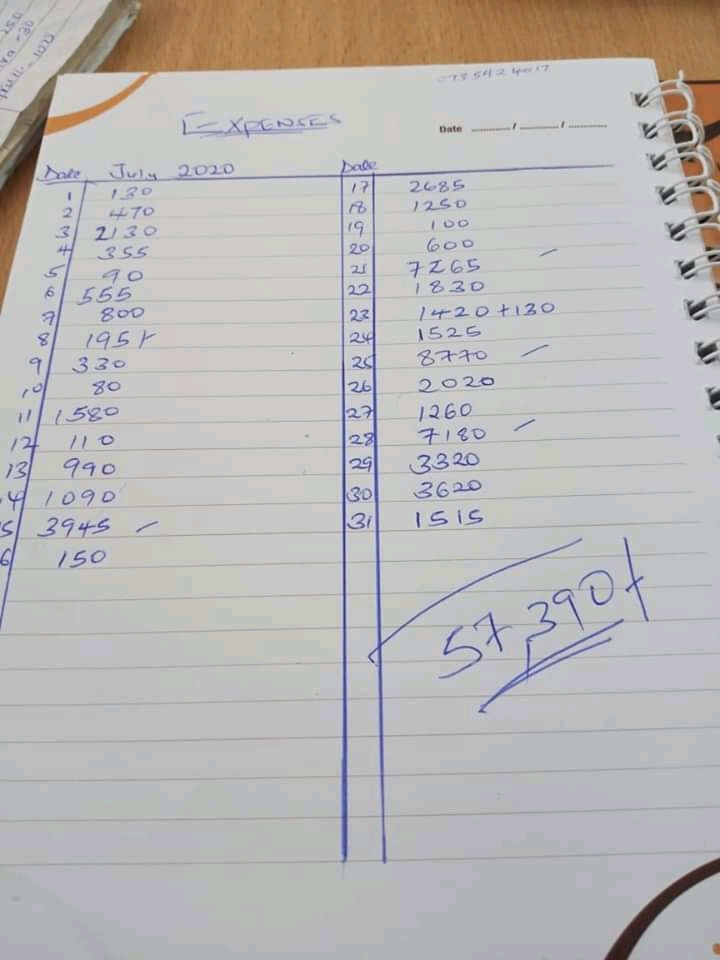 0735424017
EXPENSES
Date ............/............/............
Date July 2020
1 130
2 470
3 2130
4 355
5 90
6 555
7 800
8 195
9 330
10 80
11 1580
12 110
13 990
14 1090
5 3945 -
6 150
Date
17 2685
18 1250
19 100
20 600
21 7265 -
22 1830
23 1420 + 130
24 1525
25 8770 -
26 2020
27 1260
28 7180 -
29 3320
30 3620
31 1515
57,390